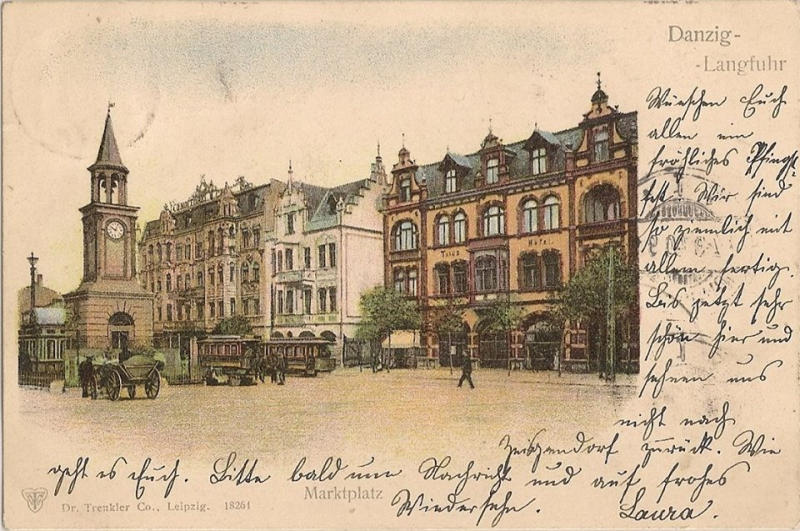 Danzig-
-Langfuhr
Wünschen Euch
allen ein
fröhliches Pfingst-
fest. Wir sind
so ziemlich mit
allem fertig.
Bis jetzt sehr
schön hier und
sehnen uns
nicht nach
zurück. Wie
geht es Euch. Bitte bald um Nachricht und auf frohes
Wiedersehn. Laura.
Hotel
Marktplatz
Dr. Trenkler Co., Leipzig. 18261